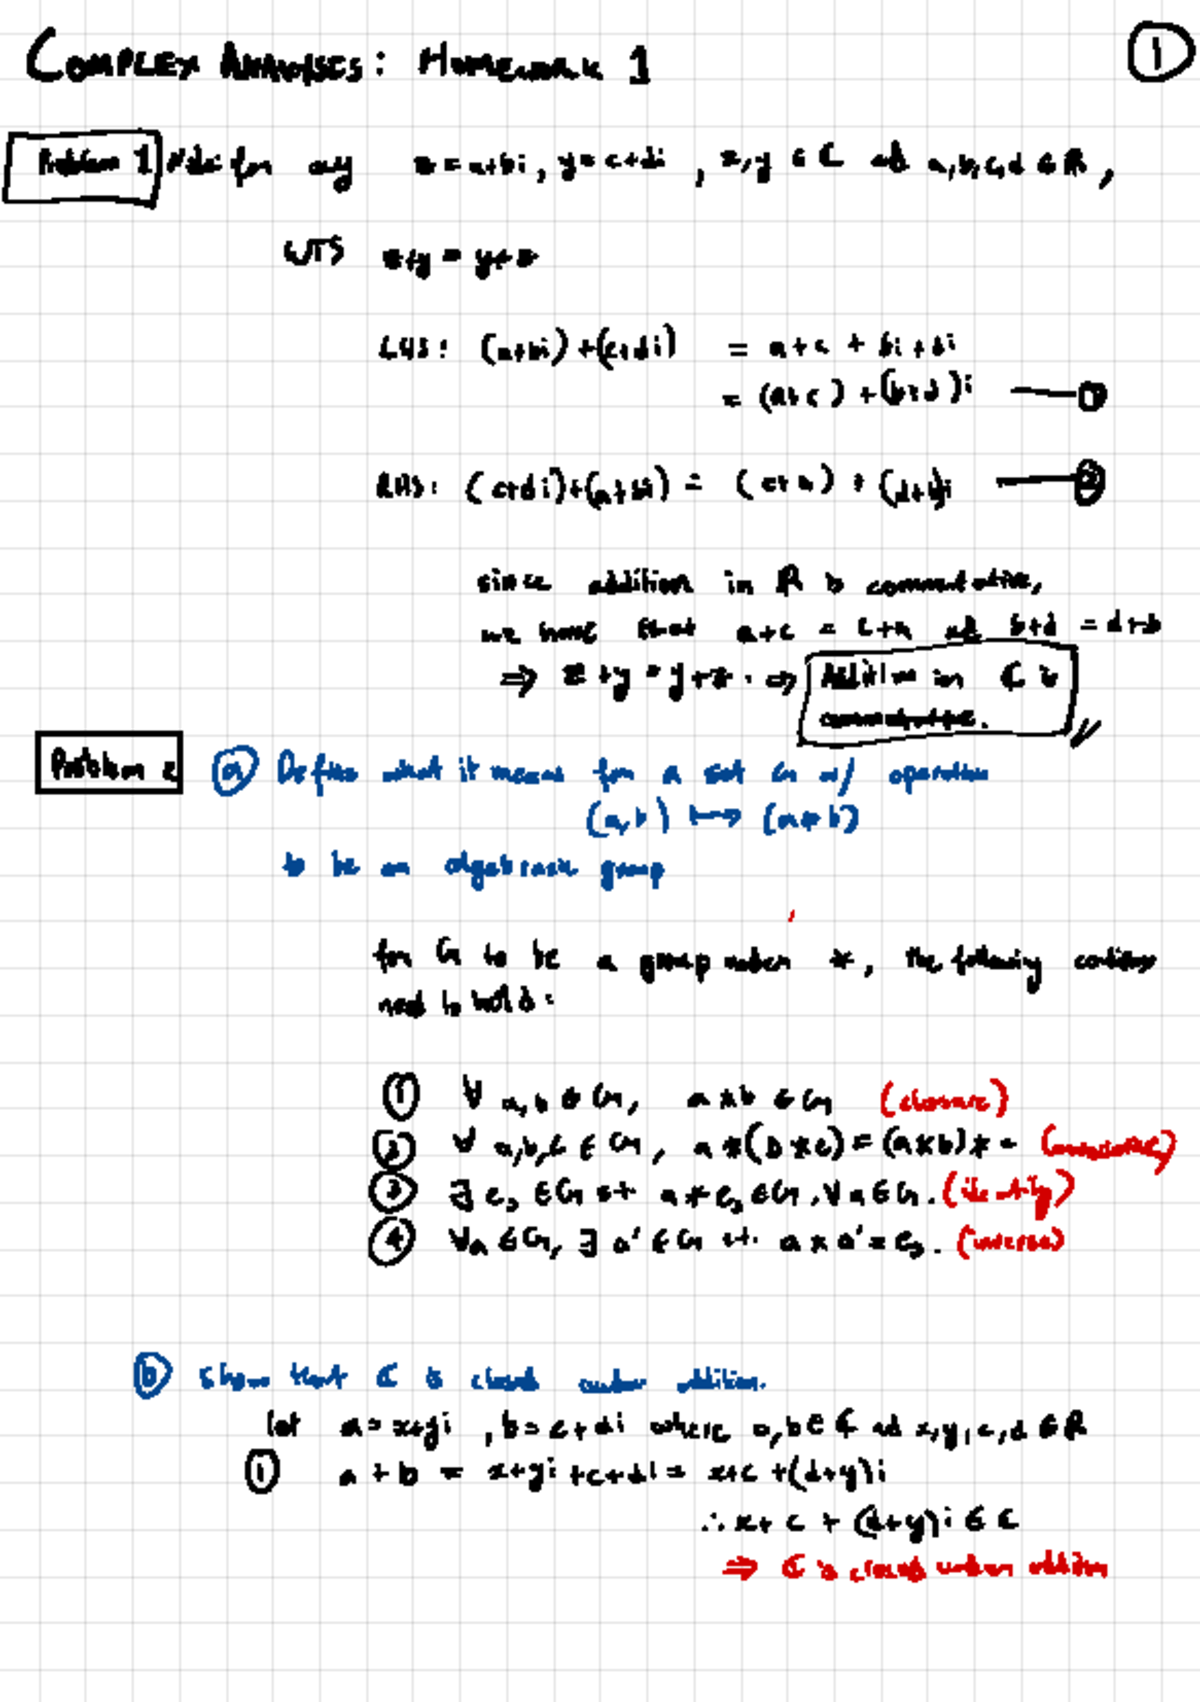 COMPLEX ANALYSES: HOMEWORK 1
①
Problem 1 Note: for any z = a+bi, y = c+di, z,y ∈ ℂ ad a,b,c,d ∈ ℝ,
WTS z+y = y+z
LHS: (a+bi)+(c+di) = a+c + bi+di
= (a+c) + (b+d)i — ①
RHS: (c+di)+(a+bi) = (c+a) + (d+b)i — ②
since addition in ℝ is commutative,
we have that a+c = c+a ad b+d = d+b
⇒ z+y = y+z. ⇒ Addition in ℂ is
commutative.
Problem 2 ⓐ Define what it means for a set G w/ operation
(a,b) ⟼ (a*b)
to be an algebraic group
for G to be a group under *, the following conditions
need to hold:
① ∀ a,b ∈ G, a*b ∈ G (closure)
② ∀ a,b,c ∈ G, a*(b*c) = (a*b)*c (associativity)
③ ∃ e, ∈ G st a*e, ∈ G, ∀ a ∈ G. (identity)
④ ∀a ∈ G, ∃ a' ∈ G st. a*a' = e,. (inverse)
ⓑ Show that ℂ is closed under addition.
let a = x+yi, b = c+di where a,b ∈ ℂ ad x,y,c,d ∈ ℝ
① a + b = x+yi+c+di = x+c +(d+y)i
∴ x+c + (d+y)i ∈ ℂ
⇒ ℂ is closed under addition